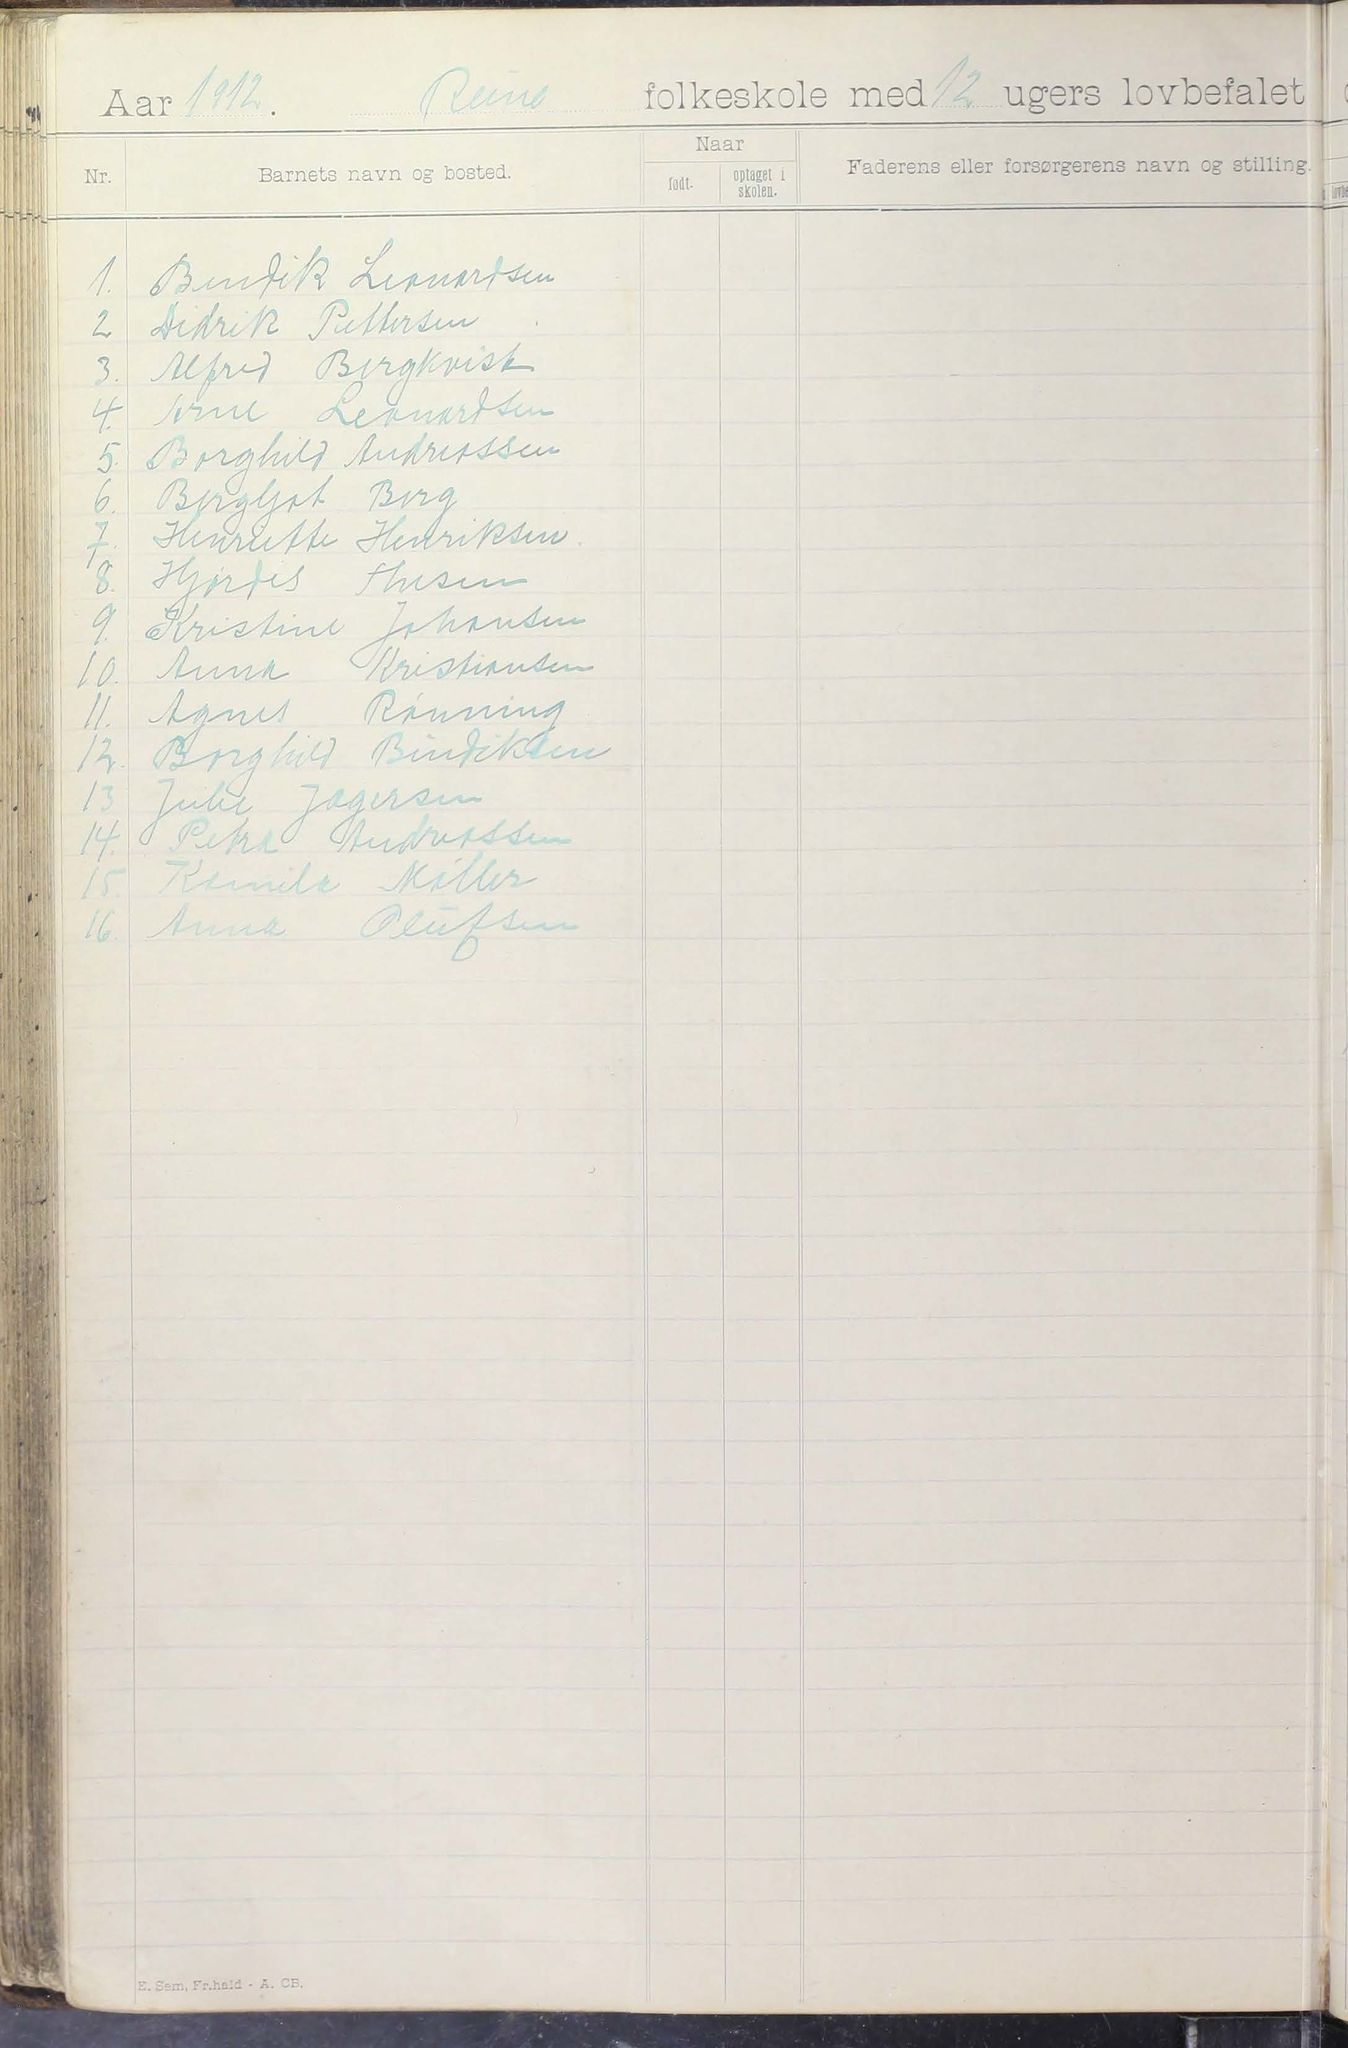 Aar 1912. Reine folkeskole med 12 ugers lovbefalet
Nr.
Barnets navn og bosted.
Naar
født.
optaget i skolen.
Faderens eller forsørgerens navn og stilling.
1. Bendik Leonardsen
2 Didrik Pettersen
3. Alfred Bergkvist
4. Arne Leonardsen
5. Borghild Andreassen
6. Bergljot Berg
7. Henriette Henriksen
8. Hjørdis Thesen
9. Kristine Johansen
10. Anna Kristiansen
11. Agnes Rønning
12. Borghild Bendiksen
13 Julie Jægersen
14. Petra Andreassen
15. Kamila Møller
16. Anna Olufsen
E. Sem, Fr.hald - A. CB.